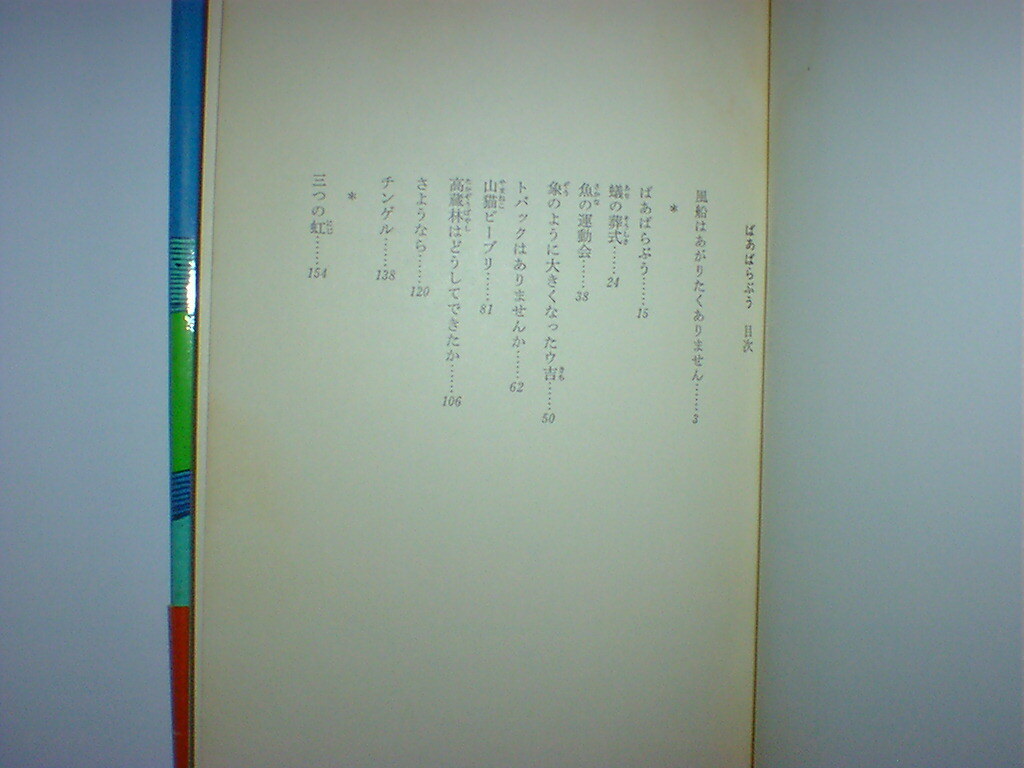 ばあばらぶう　目次
風船はあがりたくありません……3
*
ばあばらぶう……15
蟻の葬式……24
魚の運動会……38
象のように大きくなったウ吉……50
トバックはありませんか……62
山猫ビーブリ……81
高蔵林はどうしてできたか……106
さようなら……120
チンゲル……138
*
三つの虹……154